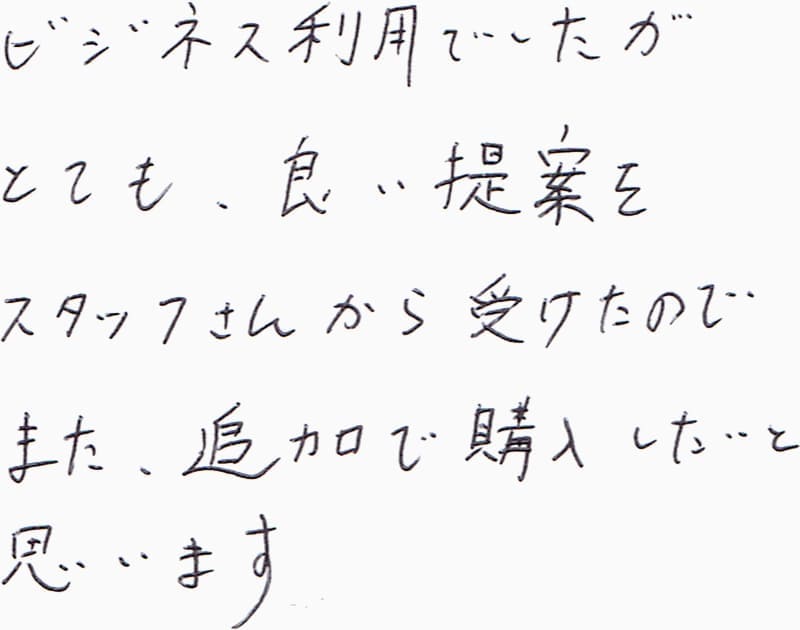 ビジネス利用でしたが
とても、良い提案を
スタッフさんから受けたので
また、追加で購入したいと
思います